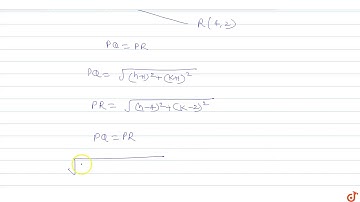 R(4,2)
PQ = PR
PQ = √(h-1)²+(k+1)²
PR = √(h-4)²+(k-2)²
PQ = PR
√